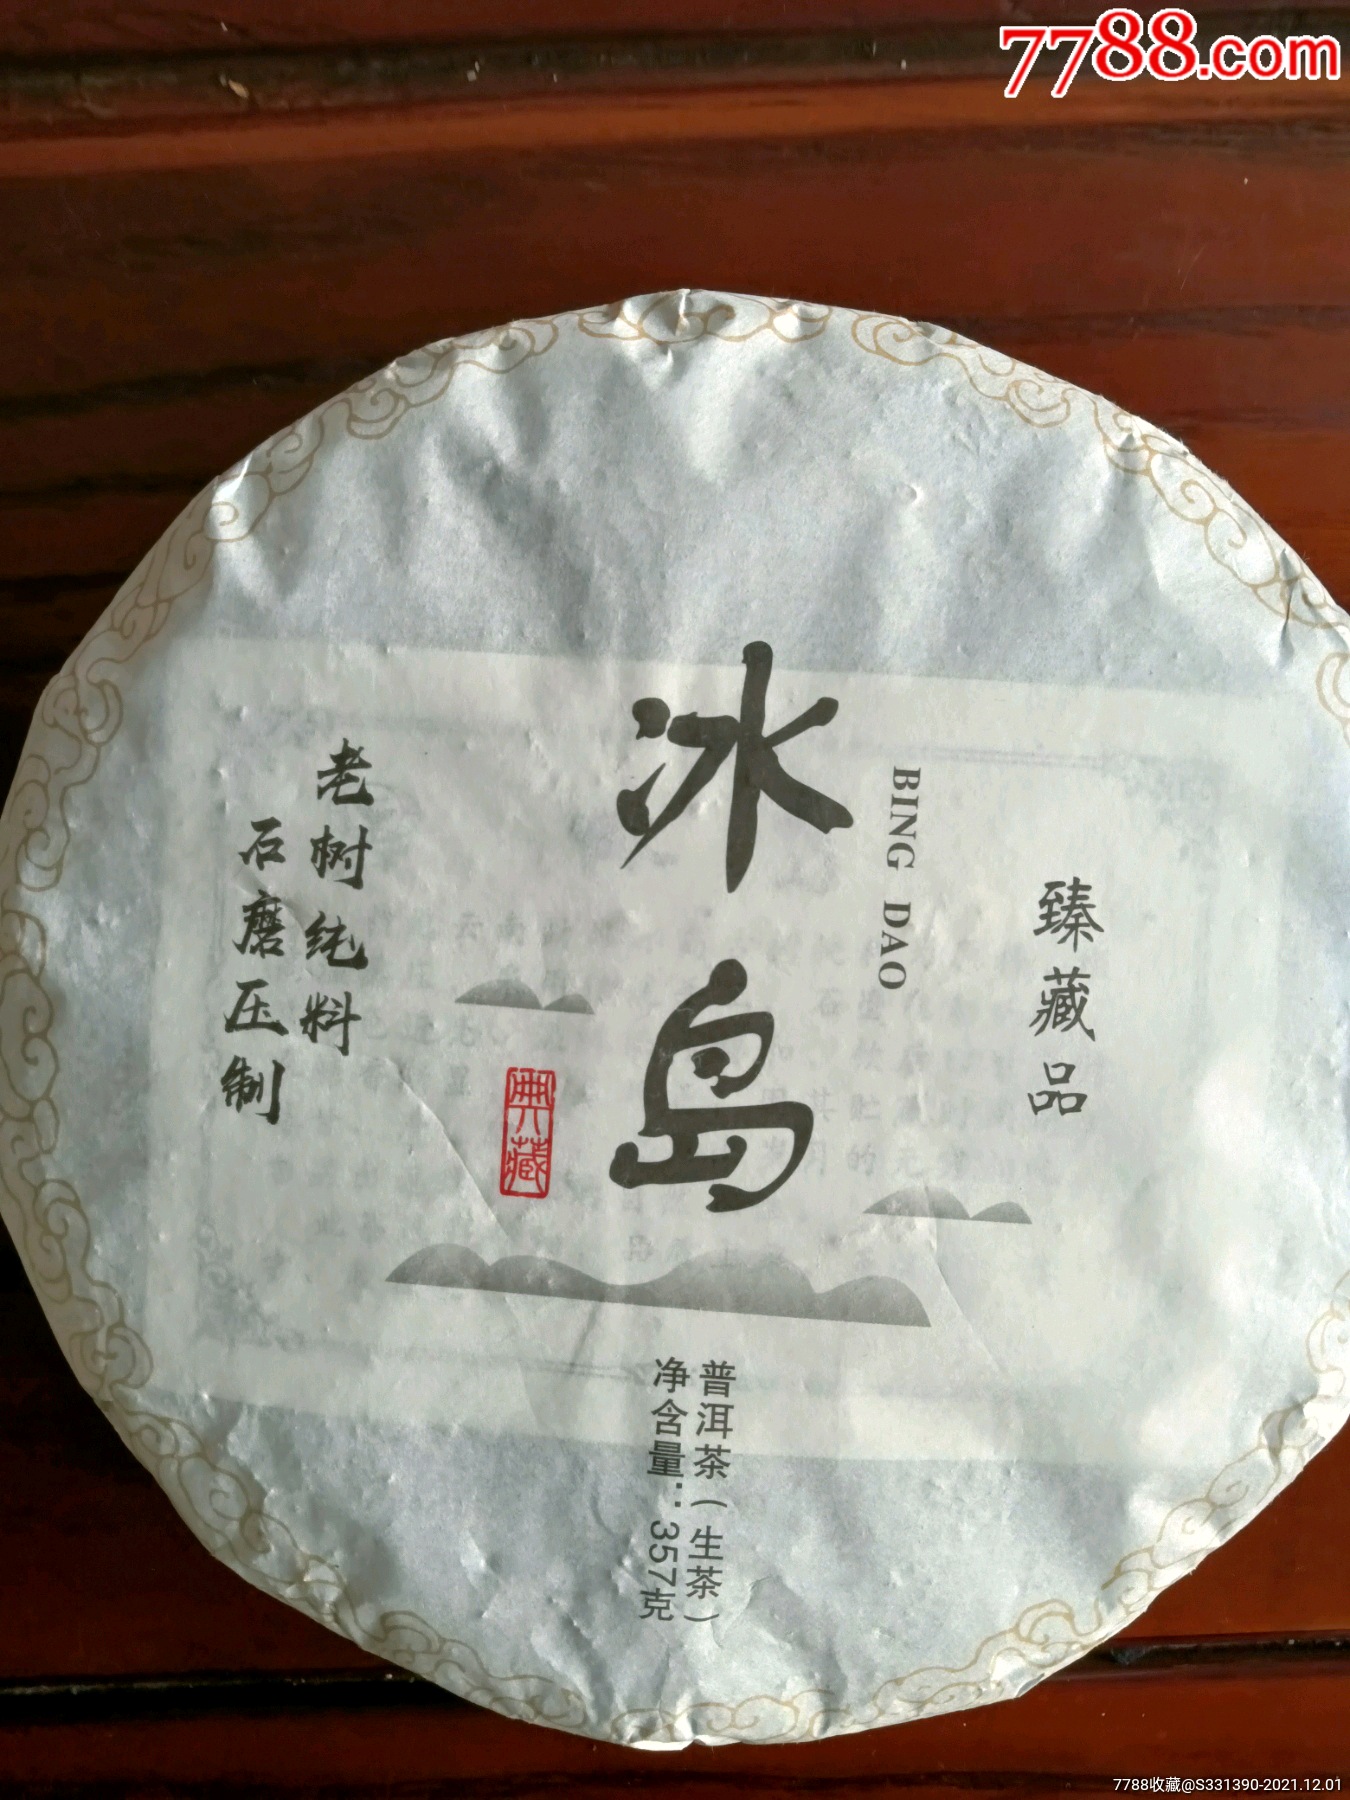 7788.com
臻藏品
BING DAO
冰岛
典藏
老树纯料
石磨压制
普洱茶（生茶）
净含量：357克
7788收藏@S331390-2021.12.01